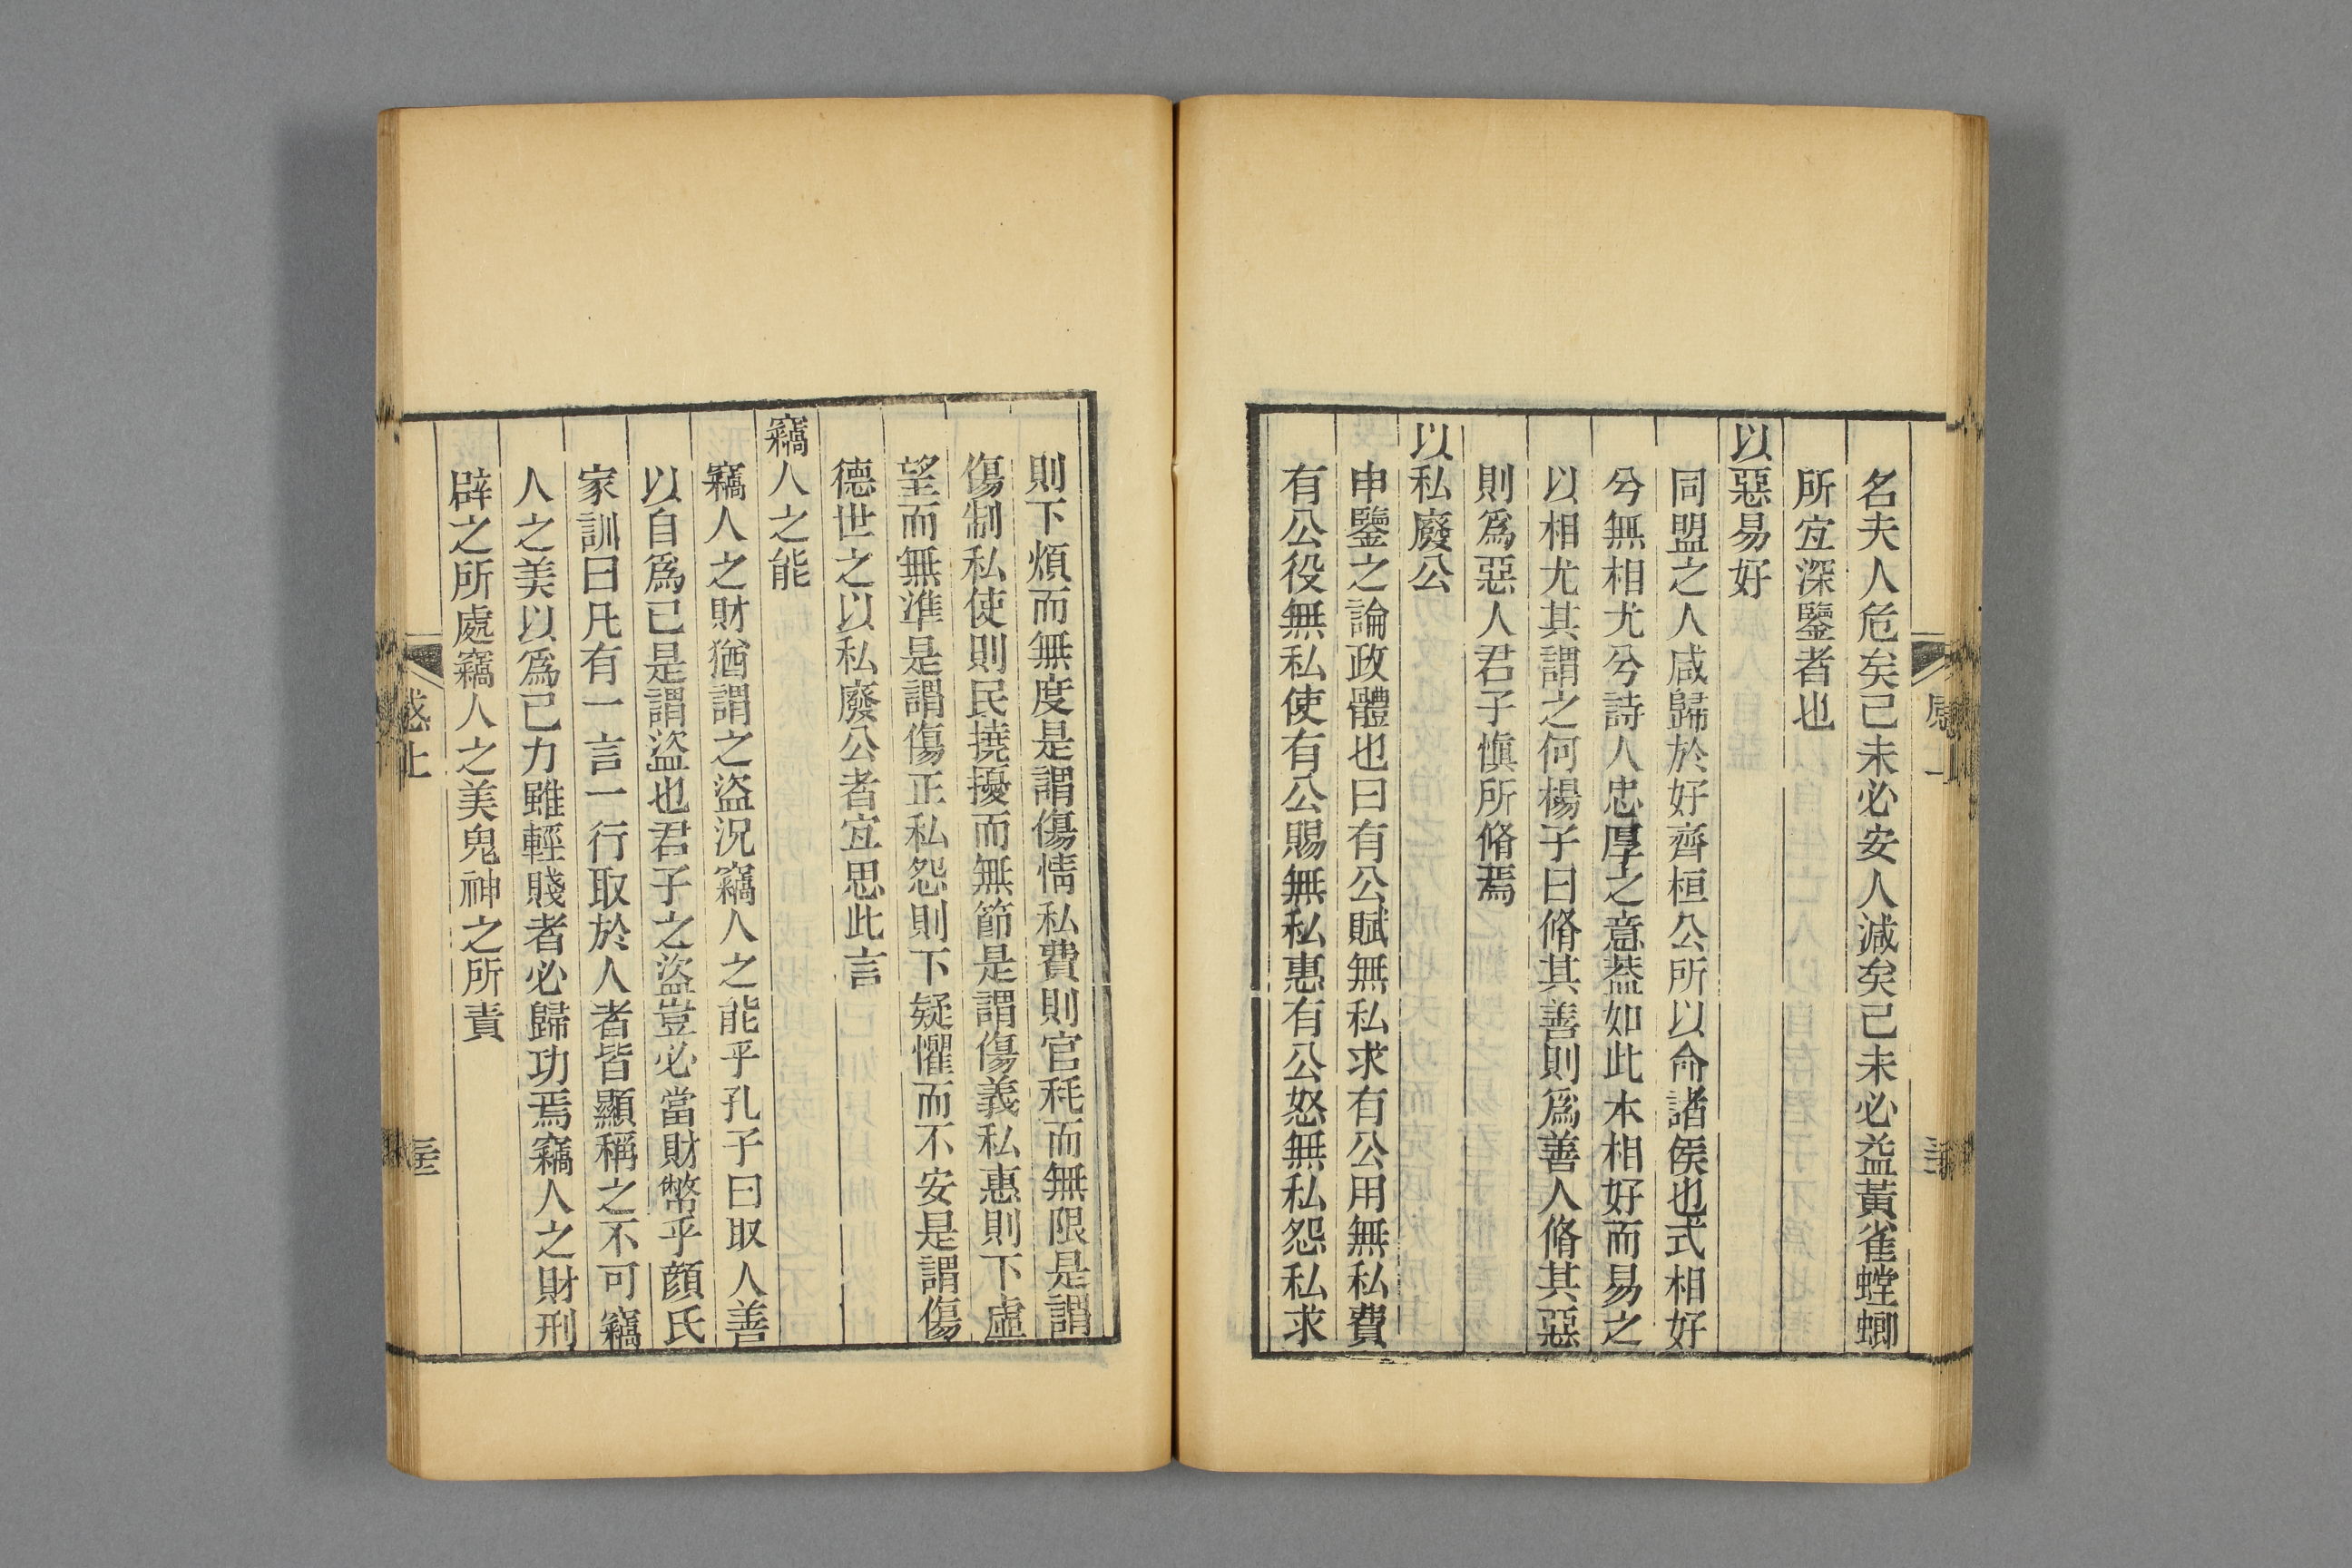 名夫人危矣己未必安人減矣己未必益黃雀螳螂
所宜深鑒者也
以惡易好
同盟之人咸歸於好齊桓公所以命諸侯也式相好
兮無相尤兮詩人忠厚之意葢如此本相好而易之
以相尤其謂之何楊子曰脩其善則爲善人脩其惡
則爲惡人君子愼所脩焉
以私廢公
申鑒之論政體也曰有公賦無私求有公用無私費
有公役無私使有公賜無私惠有公怒無私怨私求
則下煩而無度是謂傷情私費則官秏而無限是謂
傷制私使則民撓擾而無節是謂傷義私惠則下虛
望而無準是謂傷正私怨則下疑懼而不安是謂傷
德世之以私廢公者宜思此言
竊人之能
竊人之財猶謂之盜況竊人之能乎孔子曰取人善
以自爲己是謂盜也君子之盜豈必當財幣乎顔氏
家訓曰凡有一言一行取於人者皆顯稱之不可竊
人之美以爲己力雖輕賤者必歸功焉竊人之財刑
辟之所處竊人之美鬼神之所責